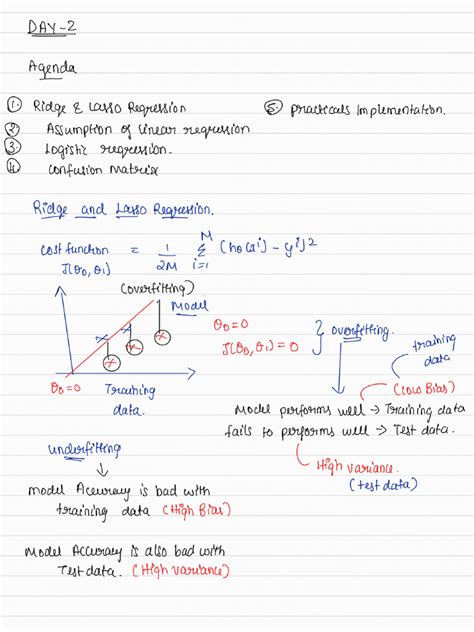 DAY-2
Agenda
① Ridge & Lasso Regression
② Assumption of linear regression
③ Logistic regression.
④ Confusion Matrix
⑤ practicals Implementation.
Ridge and Lasso Regression.
cost function = 1/2M M Σ i=1 (hθ(x^i) - y^i)^2
J(θ0, θ1)
(overfitting)
Model
θ0=0
J(θ0, θ1) = 0
} overfitting.
training
data
θ0=0
Training
data.
(Low Bias)
Model performs well → Training data
fails to performs well → Test data.
High variance.
(test data)
underfitting
model Accuracy is bad with
training data (High Bias)
Model Accuracy is also bad with
Test data. (High variance)